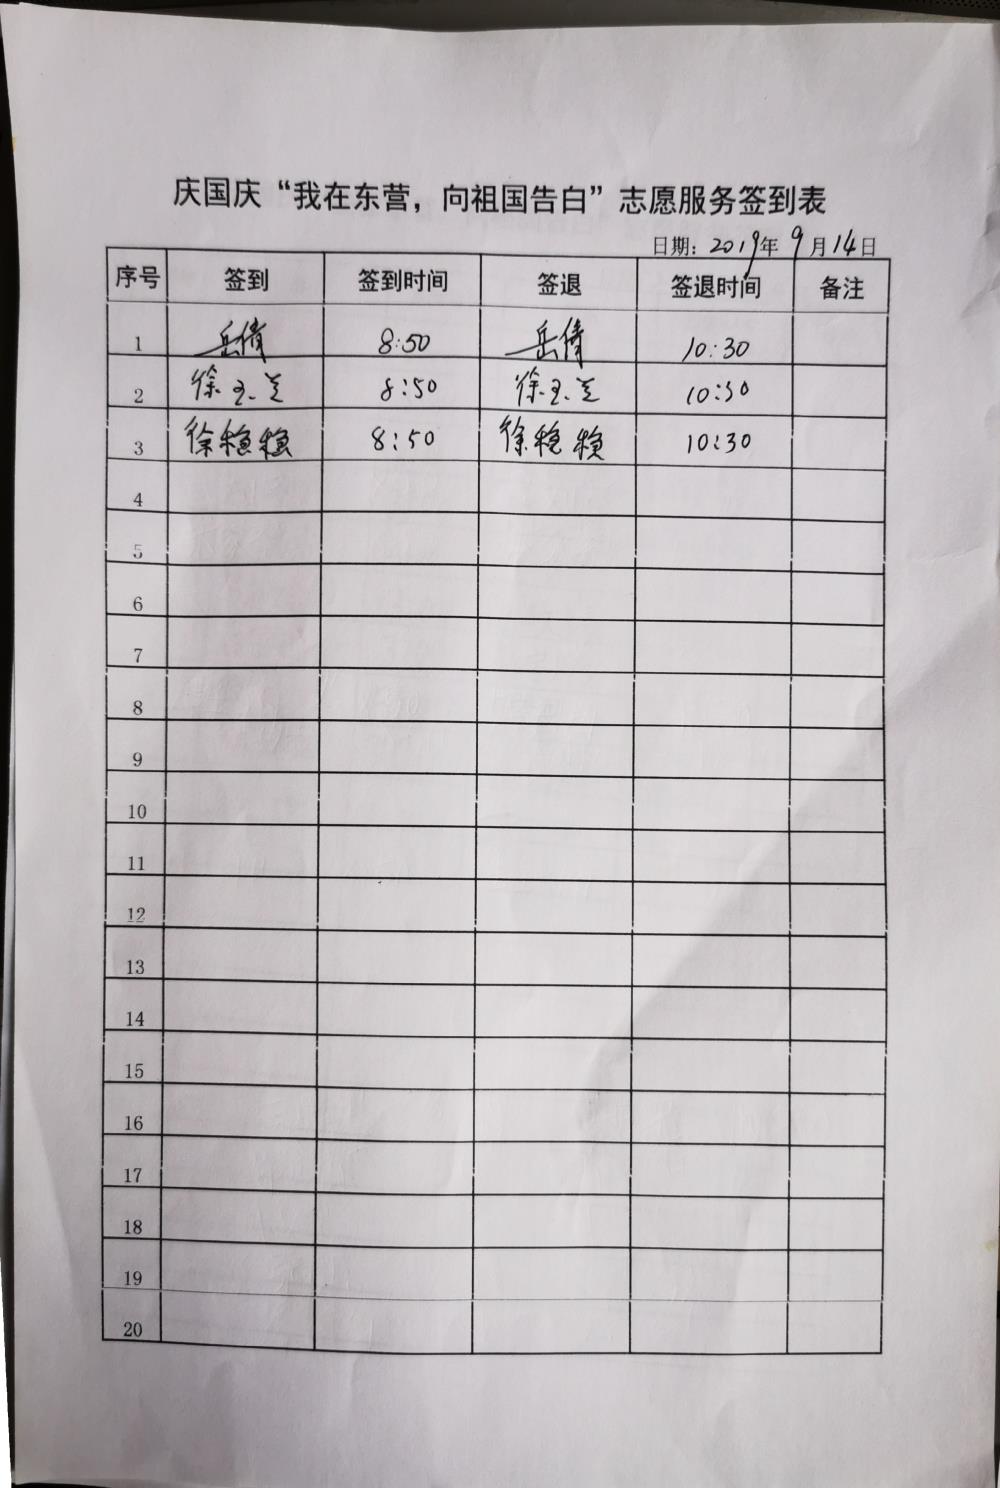 庆国庆“我在东营，向祖国告白”志愿服务签到表
日期：2019年 9月14日
序号 签到 签到时间 签退 签退时间 备注
1 岳倩 8:50 岳倩 10:30
2 徐玉兰 8:50 徐玉兰 10:30
3 徐稳稳 8:50 徐稳稳 10:30
4
5
6
7
8
9
10
11
12
13
14
15
16
17
18
19
20